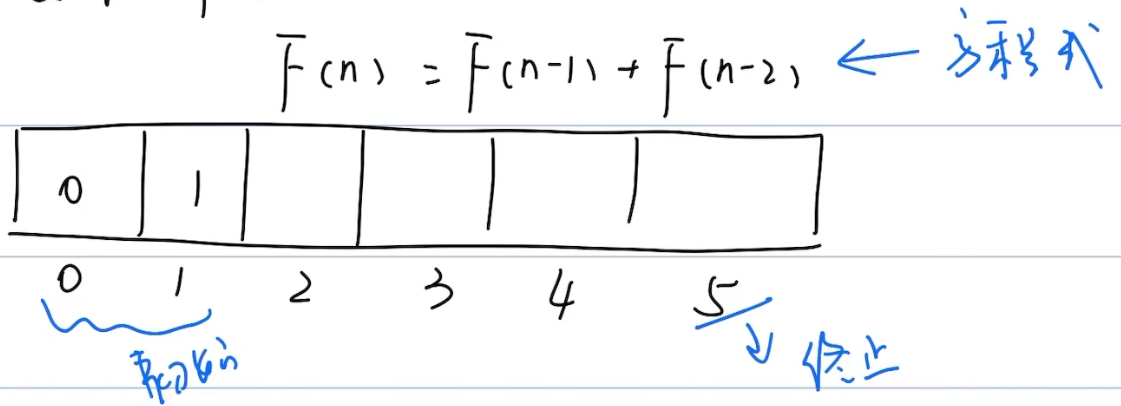 F(n) = F(n-1) + F(n-2) ← 方程式
0 1
0 1 2 3 4 5
最初始 终止